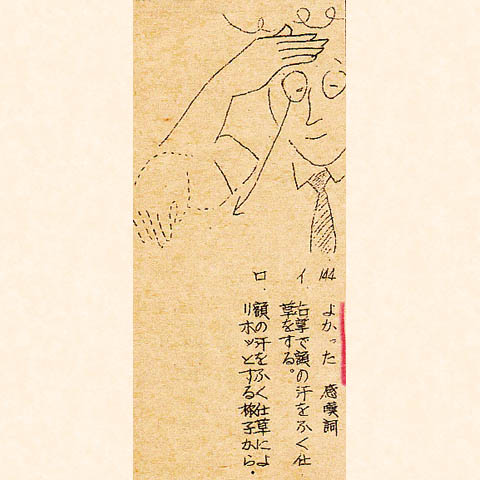 144 よかった 感嘆詞
イ. 右掌で額の汗をふく仕
草をする。
ロ. 額の汗をふく仕草によ
りホッとする様子から.